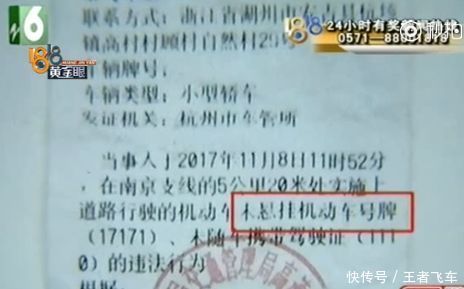 6
1818
黄金眼
24小时有奖
0571-88
秒拍
联系方式：浙江省湖州市
镇高村村顾村自然村29
车辆牌号：
车辆类型：小型轿车
发证机关：杭州市车管所
当事人于2017年11月8日11时52分
，在南京支线的5公里20米处实施上
道路行驶的机动车未悬挂机动车号牌
（17171）、未随车携带驾驶证（111
0）的违法行为
根据
快传号／王者飞车